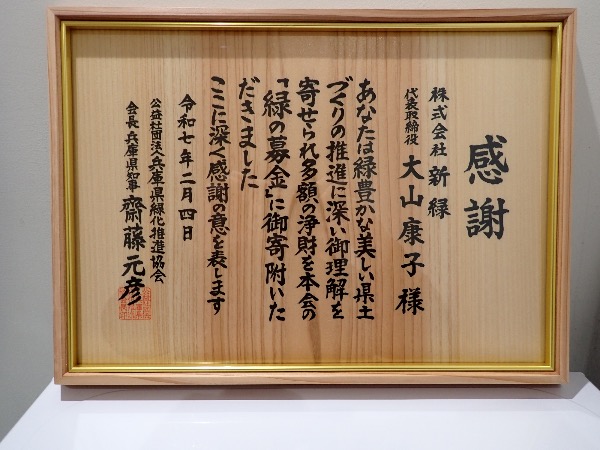 感謝
株式会社 新緑
代表取締役 大山康子様
あなたは緑豊かな美しい県土
づくりの推進に深い御理解を
寄せられ多額の浄財を本会の
「緑の募金」に御寄附いた
だきました
ここに深く感謝の意を表します
令和七年二月四日
公益社団法人兵庫県緑化推進協会
会長 兵庫県知事 齋藤元彦